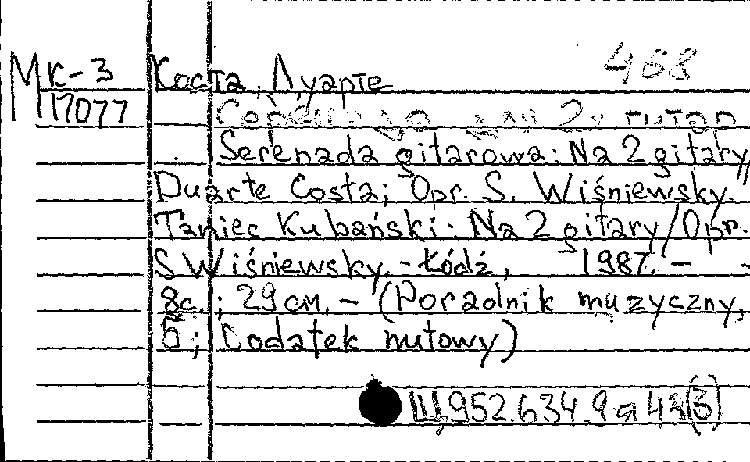 МК-3 Коста, Дуарте 468
17077 для 2х гитар
Serenada gitarowa: Na 2 gitary/
Duarte Costa; Opr. S. Wiśniewsky.
Taniec Kubański: Na 2 gitary/Opr.
S Wiśniewsky. - Łódź, 1987. -
8с.; 29 см. - (Poradnik muzyczny,
5; Dodatek nutowy)
Щ952.634.9 я 42(3)